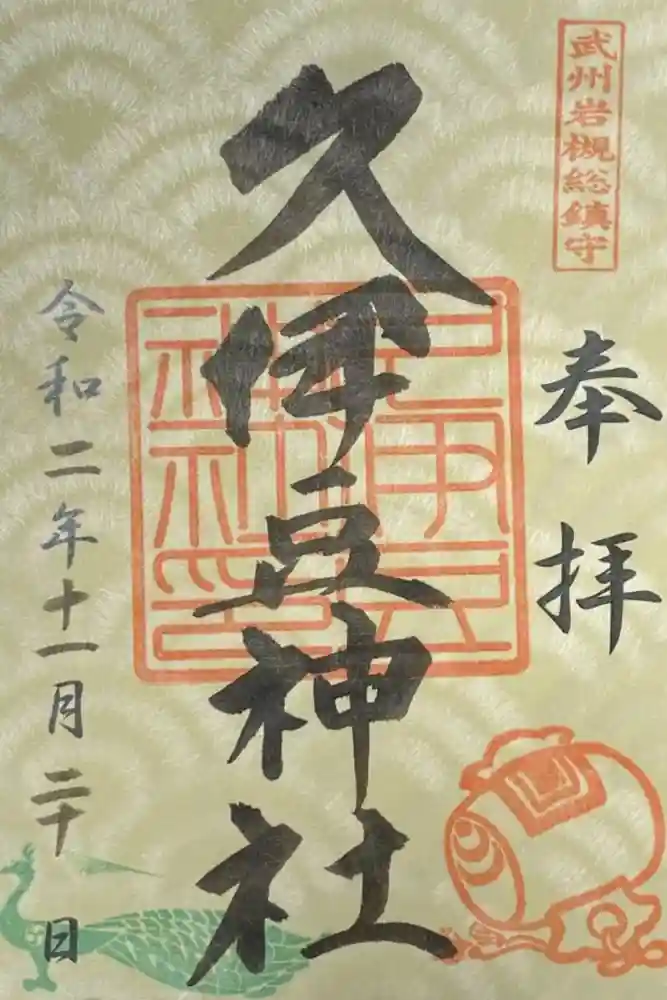 武州岩槻総鎮守
奉拝
久伊豆神社
令和二年十一月二十日